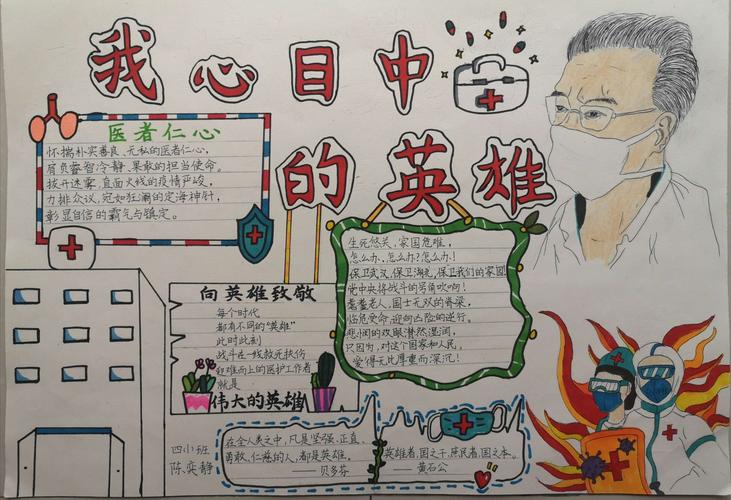 我心目中
的英雄
医者仁心
怀揣朴实善良、无私的医者仁心,
肩负睿智冷静、果敢的担当使命。
拨开迷雾,直面火线的疫情严峻,
力排众议,宛如狂澜的定海神针,
彰显自信的霸气与镇定。
向英雄致敬
每个时代
都有不同的“英雄”
此时此刻
战斗在一线救死扶伤
迎难而上的医护工作者
就是
伟大的英雄
生死攸关、家国危难,
怎么办、怎么办?怎么办!
保卫武汉、保卫湖北,保卫我们的家园
党中央将战斗的号角吹响!
耄耋老人,国士无双的脊梁,
临危受命,迎向凶险的逆行。
悲悯的双眼潸然湿润,
只因为,对这个国家和人民,
爱得无比厚重而深沉!
四小班
陈奕静
在全人类之中,凡是坚强、正直、
勇敢、仁慈的人,都是英雄。
——贝多芬
英雄者,国之干,庶民者,国之本。
——黄石公